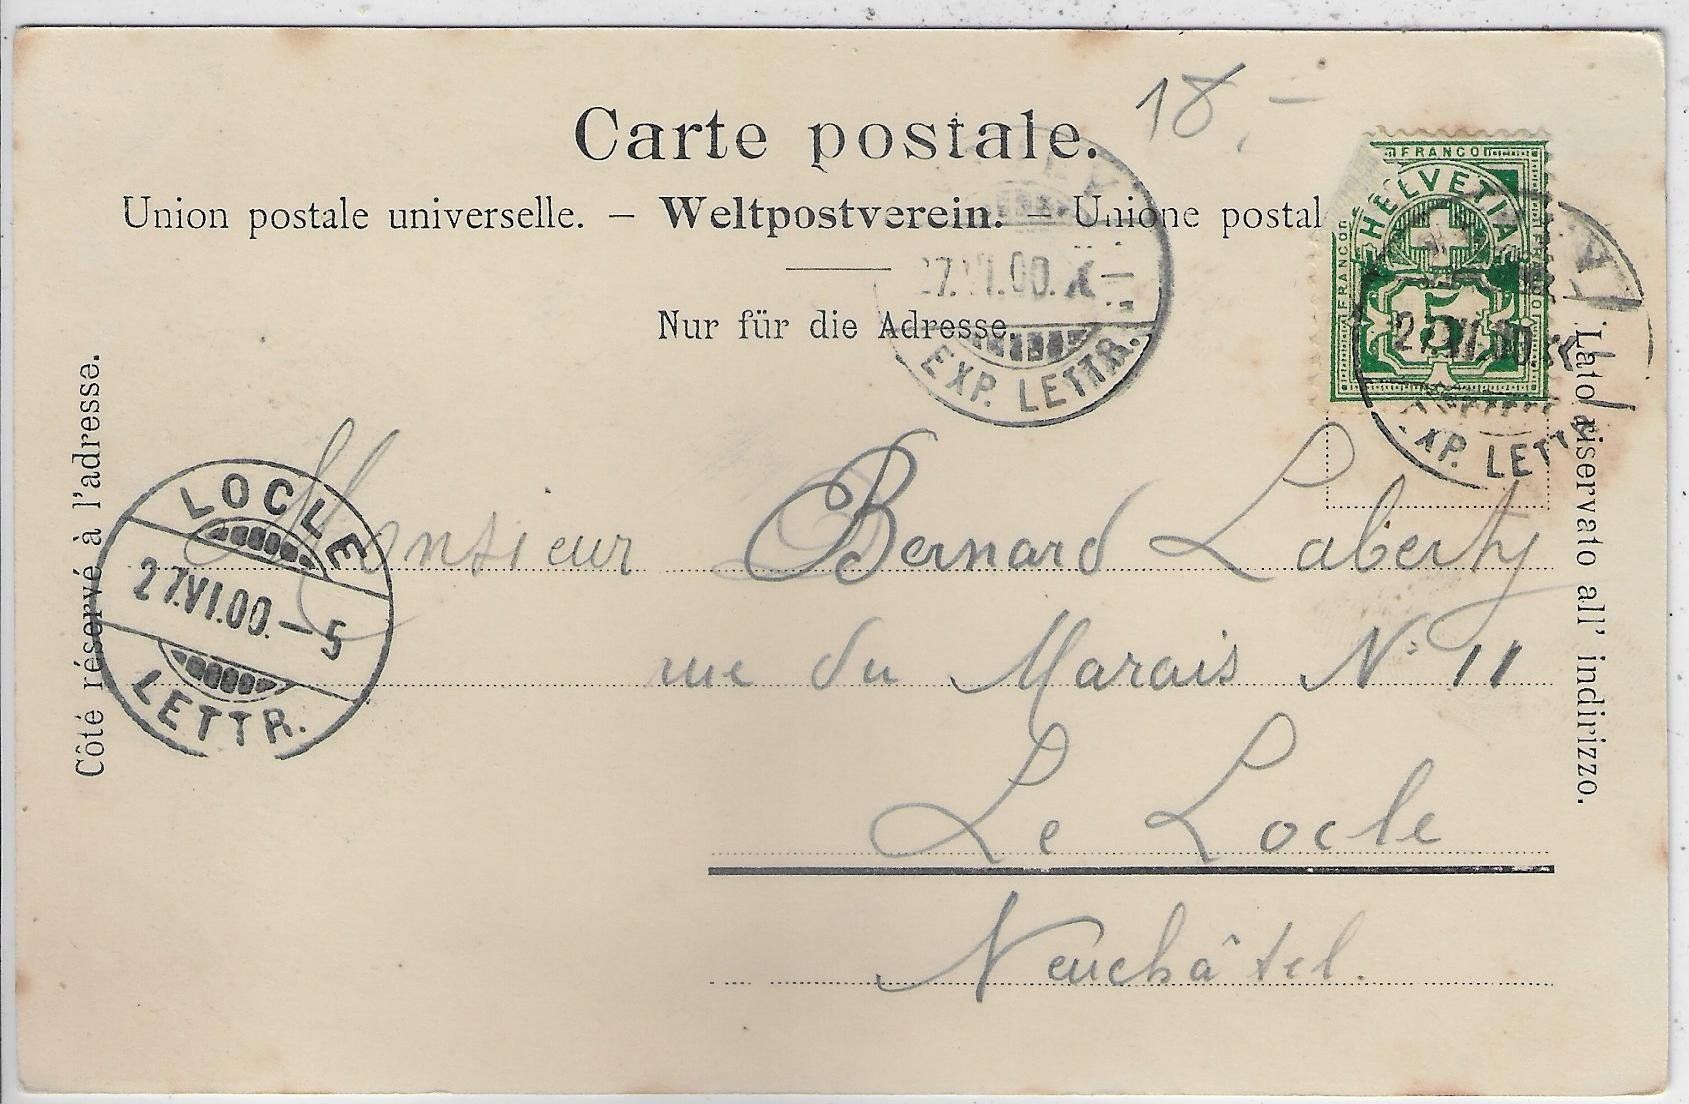 18.–
Carte postale.
Union postale universelle. – Weltpostverein. – Unione postal
Nur für die Adresse
Côté réservé à l'adresse.
Lato riservato all' indirizzo.
FRANCO
HELVETIA
FRANCO
5
EXP. LETTR.
.VI.00.X–
EXP. LETTR.
LOCLE
27.VI.00.–5
LETTR.
Monsieur Bernard Laberty
rue du Marais No 11
Le Locle
Neuchâtel.